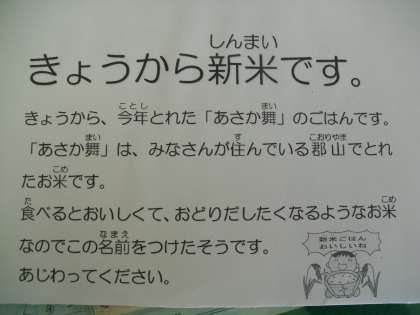 きょうから新米です。
きょうから、今年とれた「あさか舞」のごはんです。
「あさか舞」は、みなさんが住んでいる郡山でとれ
たお米です。
食べるとおいしくて、おどりだしたくなるようなお米
なのでこの名前をつけたそうです。
あじわってください。
新米ごはん
おいしいね